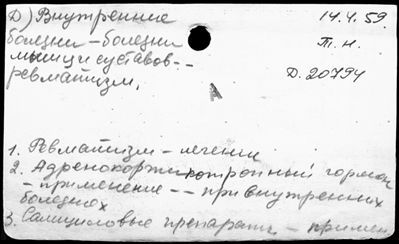 Д) Внутренние
14.4.59
болезни – болезни
т. н.
мышц и суставов --
Д. 20794
ревматизм.
А
1. Ревматизм – лечении
2. Адренокортикотропный гормон
– применение -- при внутренних
болезнях
3. Салициловые препараты – примен